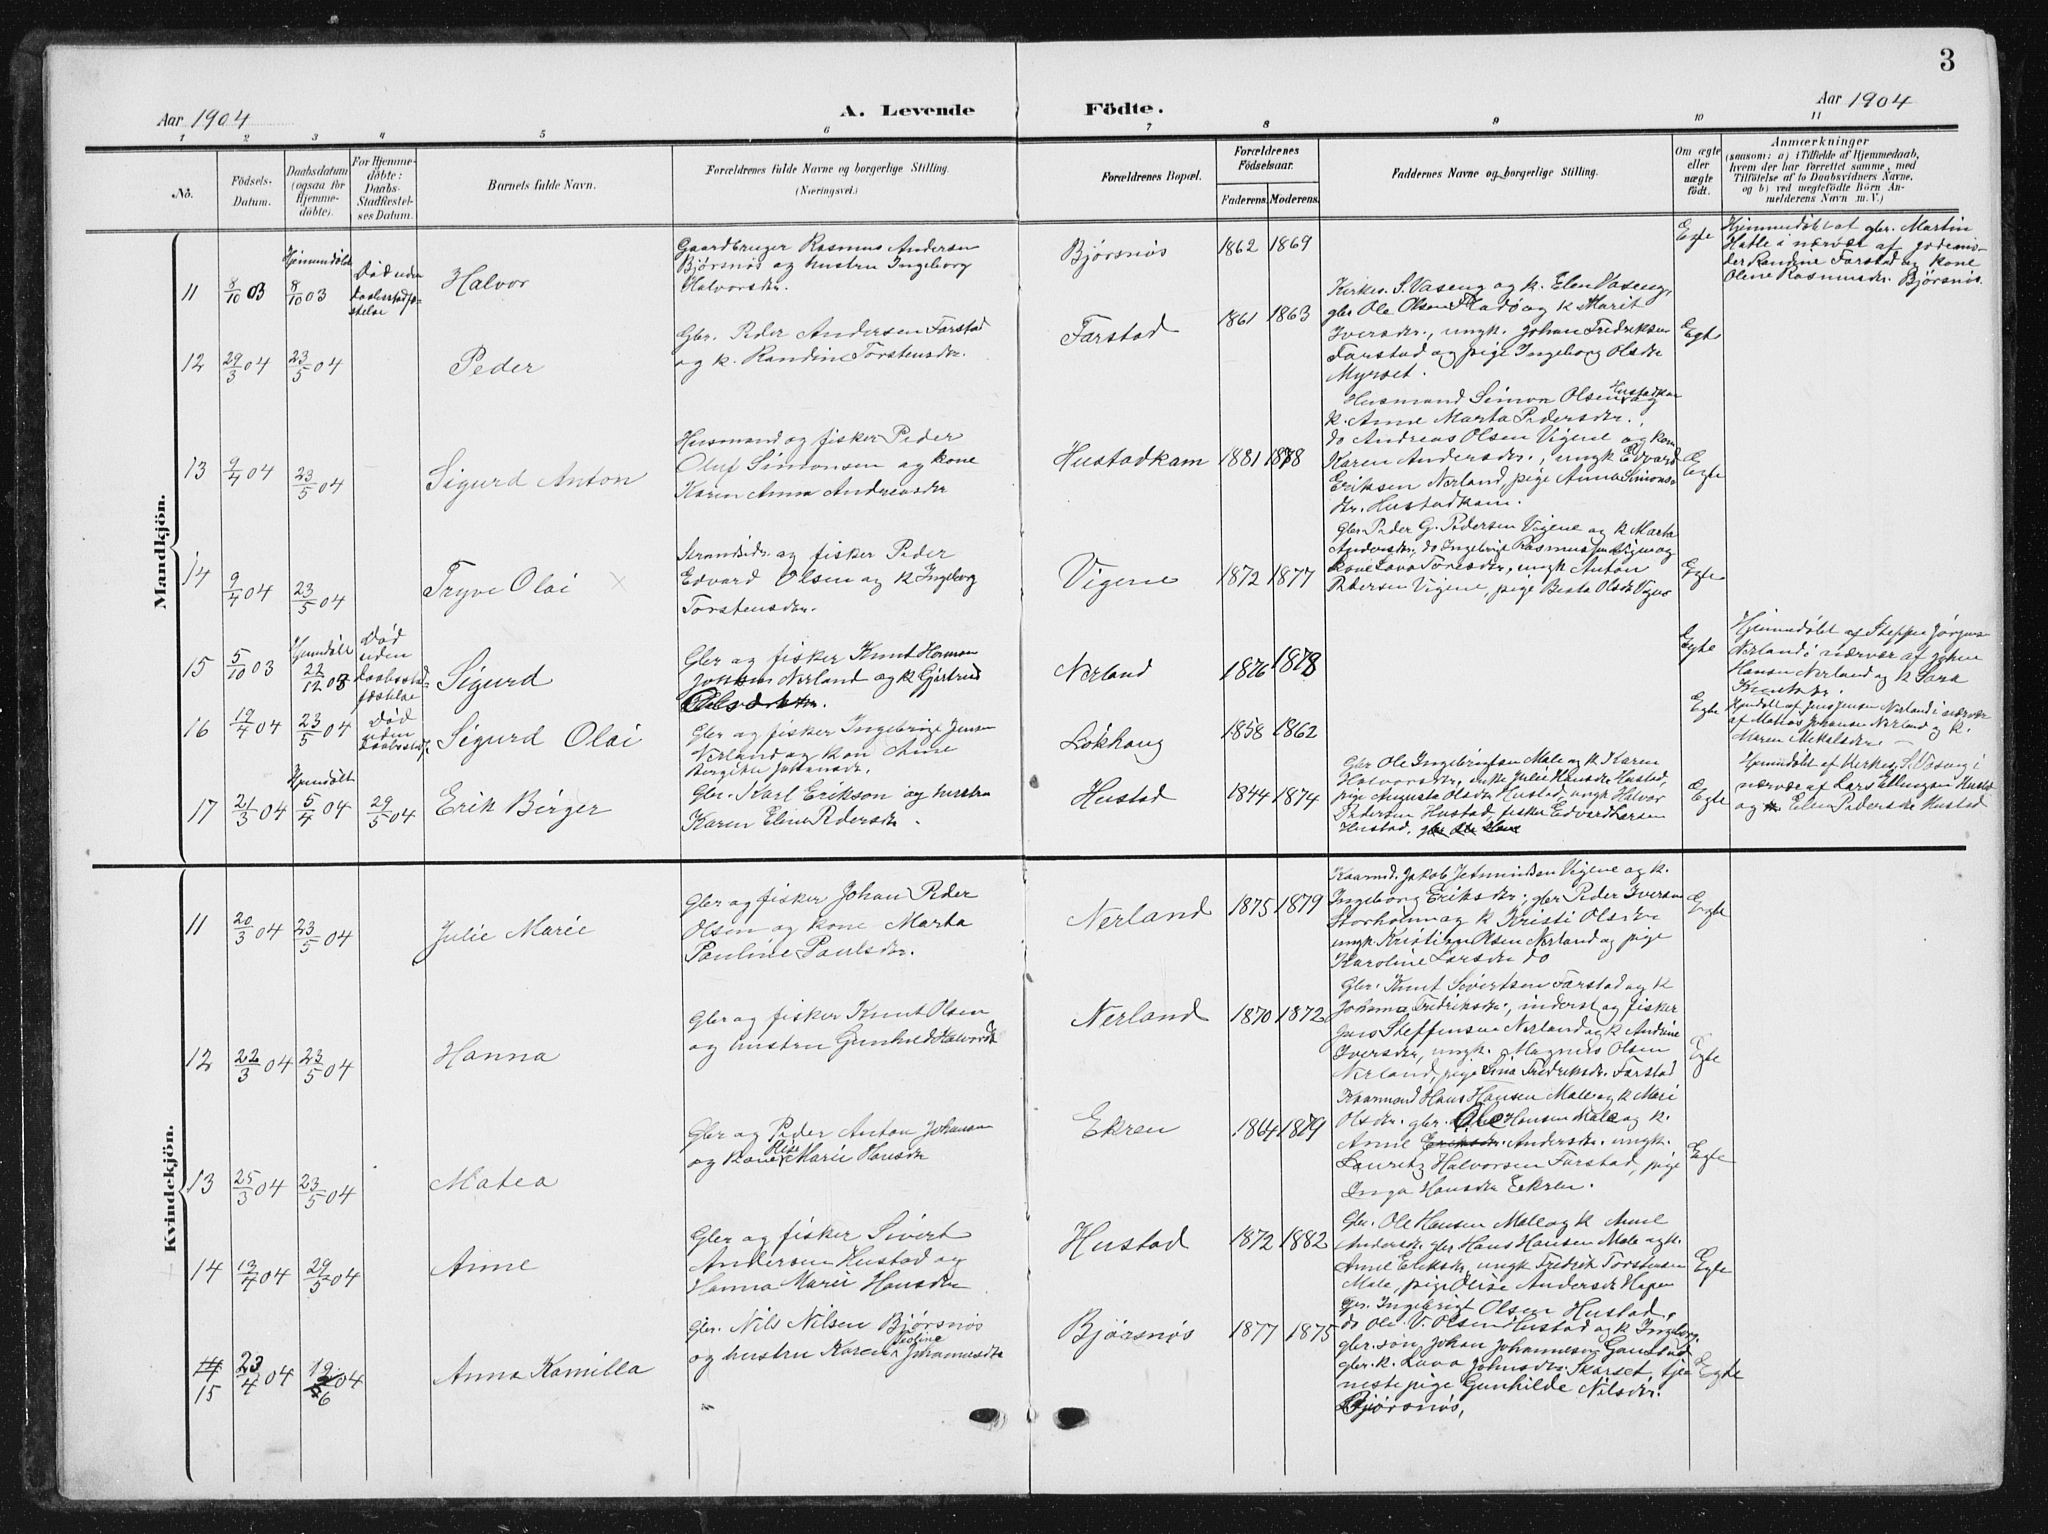 3
Aar 1904
A. Levende Födte.
Aar 1904
1 2 3 4 5 6 7 8 9 10 11
No.
Födsels-Datum.
Daabsdatum (ogsaa for Hjemmedöbte).
For Hjemmedöbte: Daabs-Stadfæstelses Datum.
Barnets fulde Navn.
Forældrenes fulde Navne og borgerlige Stilling.
(Næringsvei.)
Forældrenes Bopæl.
Forældrenes Födselsaar.
Faderens. Moderens.
Faddernes Navne og borgerlige Stilling.
Om ægte eller uægte födt.
Anmærkninger
(saasom: a) i Tilfælde af Hjemmedaab, hvem der har forrettet samme, med Tilföielse af to Daabsvidners Navne, og b) ved uægtefödte Börn Anmelderens Navn m. V.)
Mandkjön.
11 8/10 03
Hjemmedøbt
8/10 03
Død uden
Daabsstadfæ-
stelse
Halvor
Gaardbruger Rasmus Andersen
Bjørsnös og hustru Ingeborg
Halvorsdr.
Bjørsnös
1862 1869
Egte
Hjemmedöbt af gbr. Martin
Hatle i nærvær af jordemo-
der Randine Farstad og kone
Oline Rasmusdr. Bjørsnös.
12 29/3 04 23/5 04
Peder
Gbr. Peder Andersen Farstad
og k. Randine Torstensdr.
Farstad
1861 1863
Kirkes. S. Vaseng og k. Elen Vaseng,
gbr Ole Olsen Fladö og k Marit
Iversdr., ungk. Johan Fredriksen
Farstad og pige Ingeborg Olsdr
Myrset.
Egte
13 9/4 04 23/5 04
Sigurd Anton
Husmand og fisker Peder
Oluf Simonsen og kone
Karen Anna Andreasdr
Hustadkam
1881 1878
Husmand Simon Olsen Hustadkam og
k. Anne Marta Pedersdr.,
do Andreas Olsen Vigene og kone
Karen Andersdr., ungk Edvard
Eriksen Nerland, pige Anna Simons-
dr. Hustadkam.
Egte
14 9/4 04 23/5 04
Tryve Olai
Strandsidr. og fisker Peder
Edvard Olsen og k Ingeborg
Torstensdr.
Vigene
1872 1877
Gbr. Peder G. Pedersen Vigene og k Marta
Andersdr, do Ingebrigt Rasmussen Vigene og
kone Lava Toresdr, ungk Anton
Pedersen Vigene, pige Berta Olsdr Vigene
Egte
15 5/10 03
Hjemdöbt
22/12 03
Død
uden
Daabsstad-
fæstelse
Sigurd
Gbr og fisker Knut Herman
Nerland og k Gjertrud
Olsdr.
Nerland
1876 1878
Egte
Hjemmedöbt af Steffen Jørgens
Nerland i nærvær af Johan
Hansen Nerland og k Sara
Knutsdr.
16 19/4 04 23/5 04
Død
uden
Daabsstadf.
Sigurd Olai
Gbr og fisker Ingebrigt Jensen
Nerland og kone Anne
Bergitte Johansdr.
Løkhaug
1858 1862
Egte
Hjemdöbt af Jens Jensen Nerland i nærvær
af Matias Johansen Nerland og k.
Maren Mikalsdr.
17 21/3 04
Hjemdöbt
5/4 04
29/5 04
Erik Birger
Gbr. Karl Erikson og hustru
Karen Eline Pedersdr.
Hustad
1844 1874
Gbr Ole Ingebrigtsen Male og k Karen
Halvorsdr, enke Julie Hansdr Hustad,
pige Augusta Olsdr Hustad, ungk Halvor
Pedersen Hustad, fisker Edvard Larsen
Hustad.
Egte
Hjemmdöbt af Kirkes. S. Vaseng i
nærvær af Lars Ellingsen Hustad
og Elen Pedersdr Hustad
Kvindekjön.
11 20/3 04 23/5 04
Julie Marie
Gbr og fisker Johan Peder
Olsen og kone Marta
Pauline Paulsdr.
Nerland
1875 1879
Kaarmd. Jakob Jetmundsen Vigene og k.
Ingeborg Eriksdr., gbr Peder Iversen
Storholm og k Kristi Olsdr
ungk. Kristian Olsen Nerland og pige
Karoline Larsdr do
Egte
12 22/3 04 23/5 04
Hanna
Gbr og fisker Knut Olsen
og hustru Gunhild Halvorsdr
Nerland
1870 1872
Gbr. Knut Sivertsen Farstad og k
Johanna Fredriksdr., inderst og fisker
Jens Steffensen Nerland og k Andrine
Iversdr, ungk. Magnus Olsen
Nerland, pige Lina Fredriksdr. Farstad
Egte
13 25/3 04 23/5 04
Matea
Gbr og Peder Anton Johansen
og kone Marie Hansdr
Ekren
1864 1879
Kaarmand Hans Hansen Male og k Mari
Olsdr. gbr. Ole Hansen Male og k.
Anne Eriksdr. Andersdr. ungk.
Lauritz Halvorsen Farstad, pige
Inga Hansdr Eekren.
Egte
14 13/4 04 29/5 04
Anne
Gbr og fisker Sivert
Andersen Hustad og
Hanna Marie Hansdr
Hustad
1872 1882
Gbr. Ole Hansen Male og k Anne
Andersdr. gbr. Hans Hansen Male og k.
Anne Eriksdr, ungk Fredrik Torstensen
Male, pige Olise Andersdr Hagen
Egte
14 15 23/4 04 12/6 04
Anna Kamilla
Gbr. Nils Nilsen Bjørsnös
og hustru Karen Teoline Johannesdr
Bjørsnös
1877 1875
Gbr. Ingebrigt Olsen Hustad,
do Ole V. Olsen Hustad og k Ingeborg
gbr. søn Johan Johannesen Gaustad
gbr. k. Lava Johnsdr. Skarset, tje-
nestepige Gunhilde Nilsdr.
Bjørsnös.
Egte